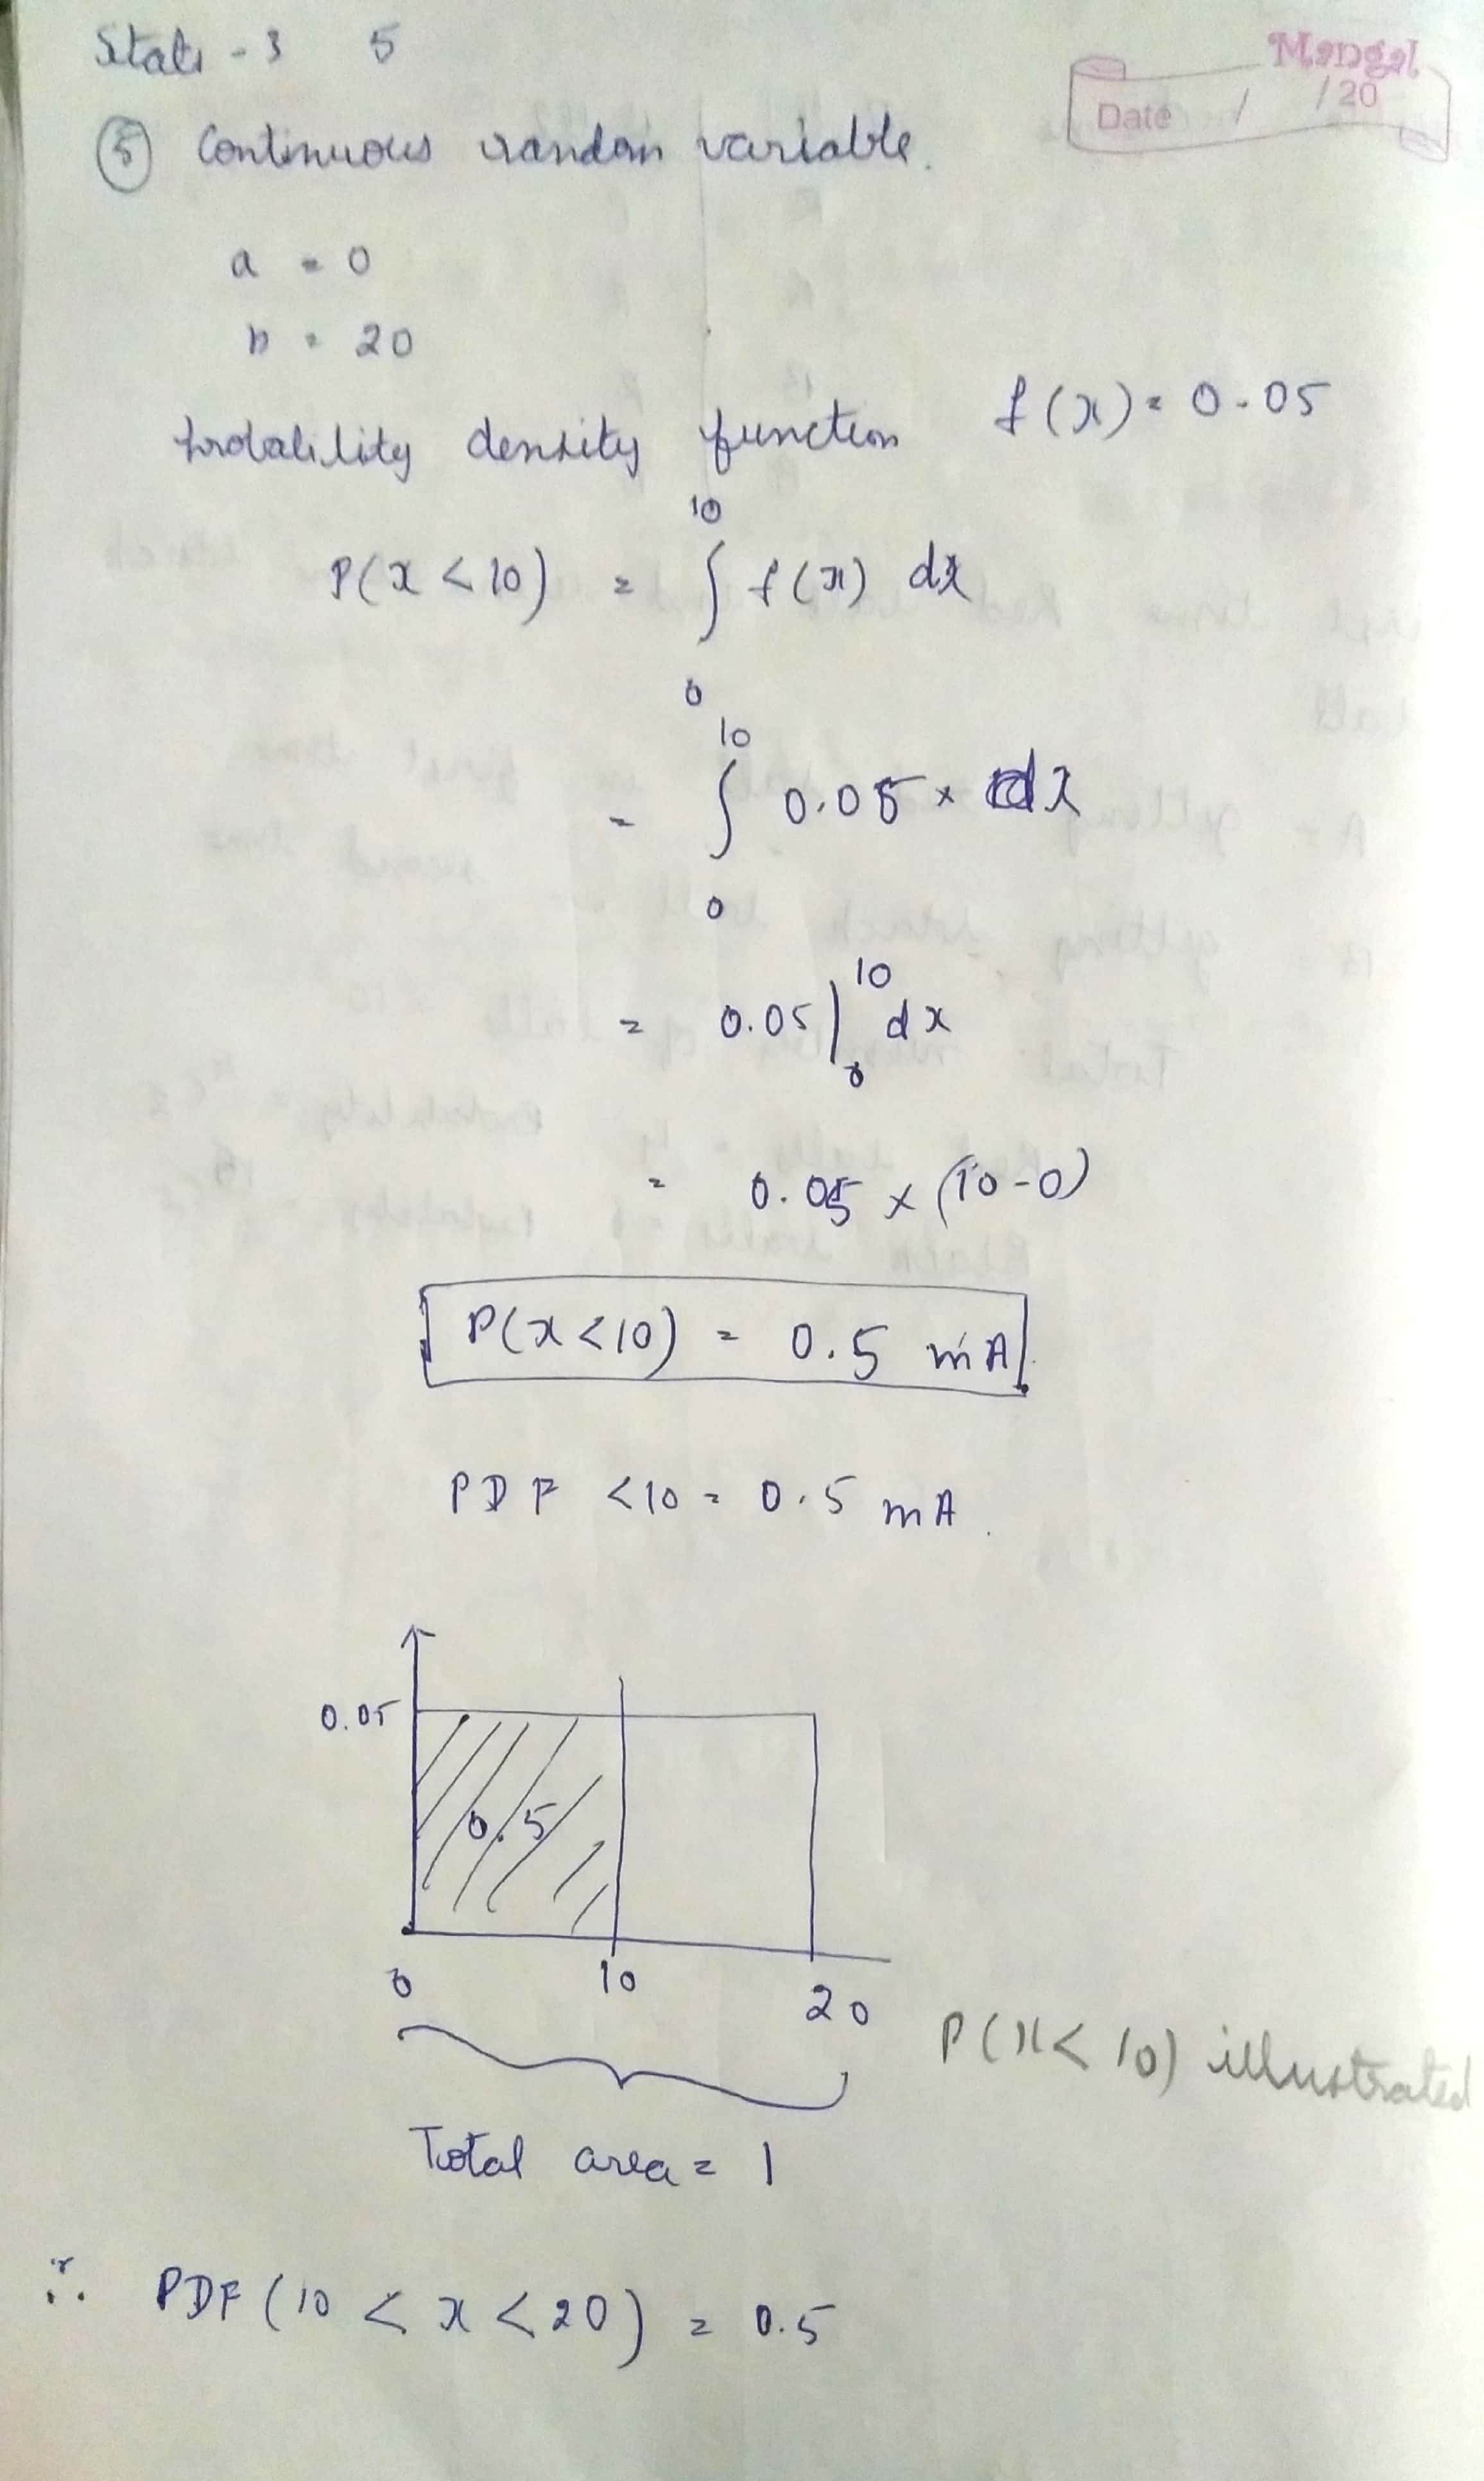 Stats - 3 5
Mangal
Date / /20
⑤ Continuous random variable.
a = 0
b = 20
probability density function f(x) = 0.05
P(x < 10) = ∫₀¹⁰ f(x) dx
= ∫₀¹⁰ 0.05 × dx
= 0.05 |₀¹⁰ dx
= 0.05 × (10 - 0)
P(x < 10) = 0.5 mA
PDF < 10 = 0.5 mA.
0.05
0.5
0 10 20
P(x < 10) illustrated
Total area = 1
∴ PDF (10 < x < 20) = 0.5